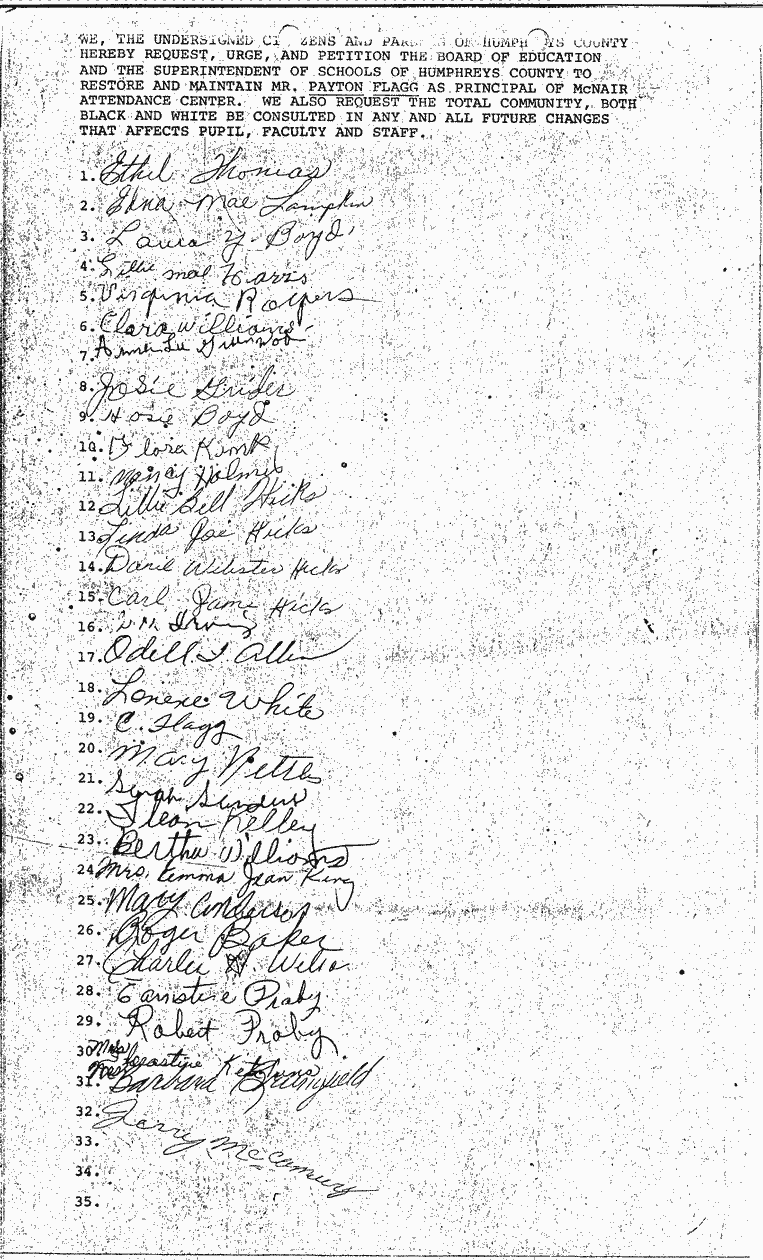 WE, THE UNDERSIGNED CI ZENS AND PAR OF HUMPH YS COUNTY
HEREBY REQUEST, URGE, AND PETITION THE BOARD OF EDUCATION
AND THE SUPERINTENDENT OF SCHOOLS OF HUMPHREYS COUNTY TO
RESTORE AND MAINTAIN MR. PAYTON FLAGG AS PRINCIPAL OF McNAIR
ATTENDANCE CENTER. WE ALSO REQUEST THE TOTAL COMMUNITY, BOTH
BLACK AND WHITE BE CONSULTED IN ANY AND ALL FUTURE CHANGES
THAT AFFECTS PUPIL, FACULTY AND STAFF.
1. Ethel Thomas
2. Edna Mae Lampkin
3. Laura Y. Boyd
4. Lillie mae
5. Virginia
6. Clara Williams
7. Annie Lee
8. Josie Grider
9. Hosie Boyd
10. Flora
11. Nancy Holmes
12. Lillie Bell Hicks
13. Linda Joe Hicks
14. Webster Hicks
15. Carl Jame Hicks
16. Irving
17. Odell T. Allen
18. Lorene White
19. C. Flagg
20. Mary
21. Sarah
22. Kelley
23. Bertha Williams
24. Mrs. Emma Jean King
25. Mary Anderson
26. Roger Baker
27. Charlie
28. Praby
29. Robert Proby
30. Mrs
31. Barbara
32. Jerry
33.
34.
35.